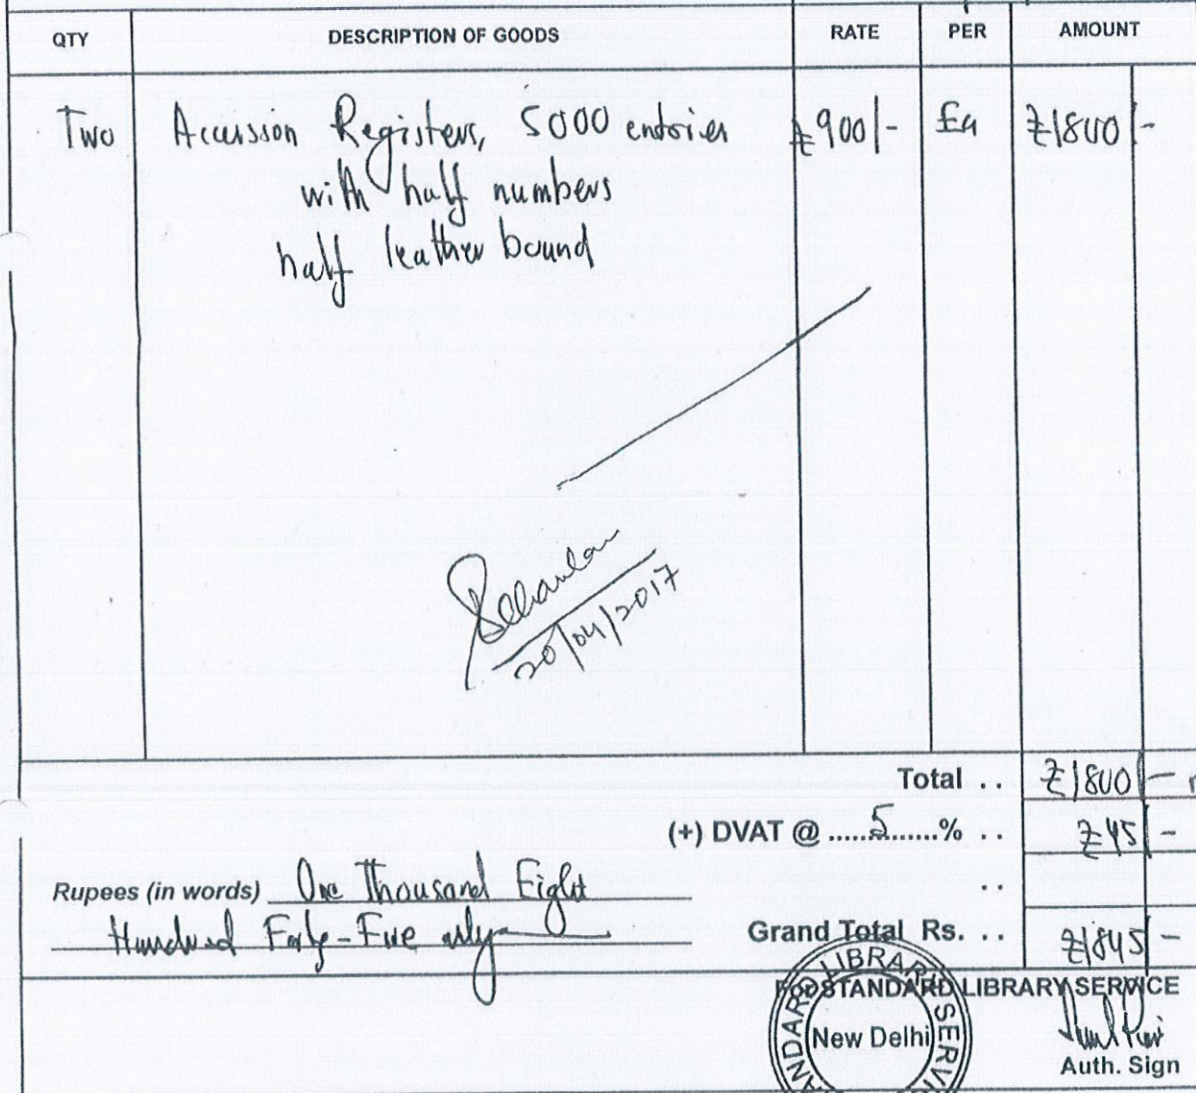 QTY DESCRIPTION OF GOODS RATE PER AMOUNT
Two Accession Registers, 5000 entries ₹900/- Ea ₹1800 -
with half numbers
half leather bound
20/04/2017
Total .. ₹1800 -
(+) DVAT @ ......5.......% .. ₹45 -
Rupees (in words) One Thousand Eight ..
Hundred Forty-Five only
Grand Total Rs. .. ₹1845 -
STANDARD LIBRARY SERVICE
New Delhi
Auth. Sign